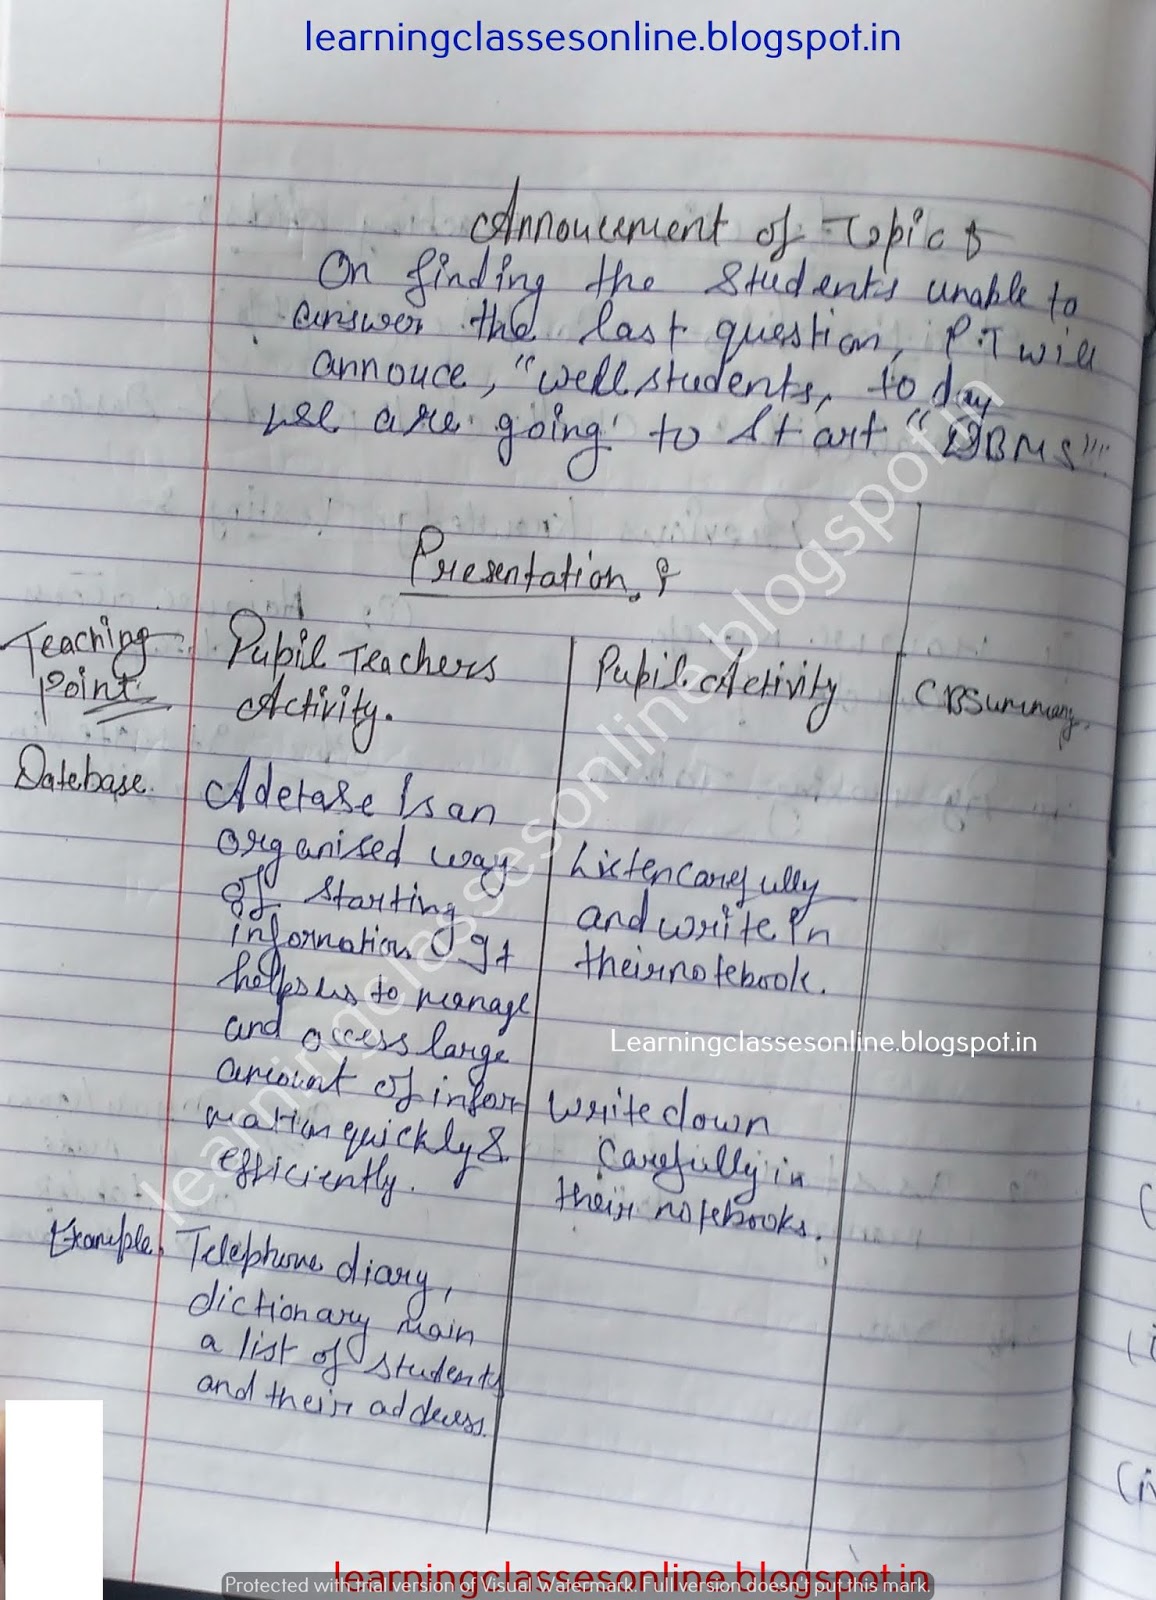 learningclassesonline.blogspot.in
Annoucement of Topic
On finding the students unable to
answer the last question, P.T will
annouce, "well students, today
we are going to start "DBMS""
Presentation
Teaching
Point
Pupil Teachers
Activity.
Pupil Activity
CBSummary.
Datebase.
Adetase is an
organised way
of starting
information It
helps us to manage
and access large
amount of infor
mation quickly &
efficiently.
Listen carefully
and write in
their notebook.
Learningclassesonline.blogspot.in
write down
carefully in
their notebooks.
Example.
Telephone diary,
dictionary main
a list of students
and their address.
learningclassesonline.blogspot.in
learningclassesonline.blogspot.in
Protected with trial version of Visual Watermark. Full version doesn't put this mark.